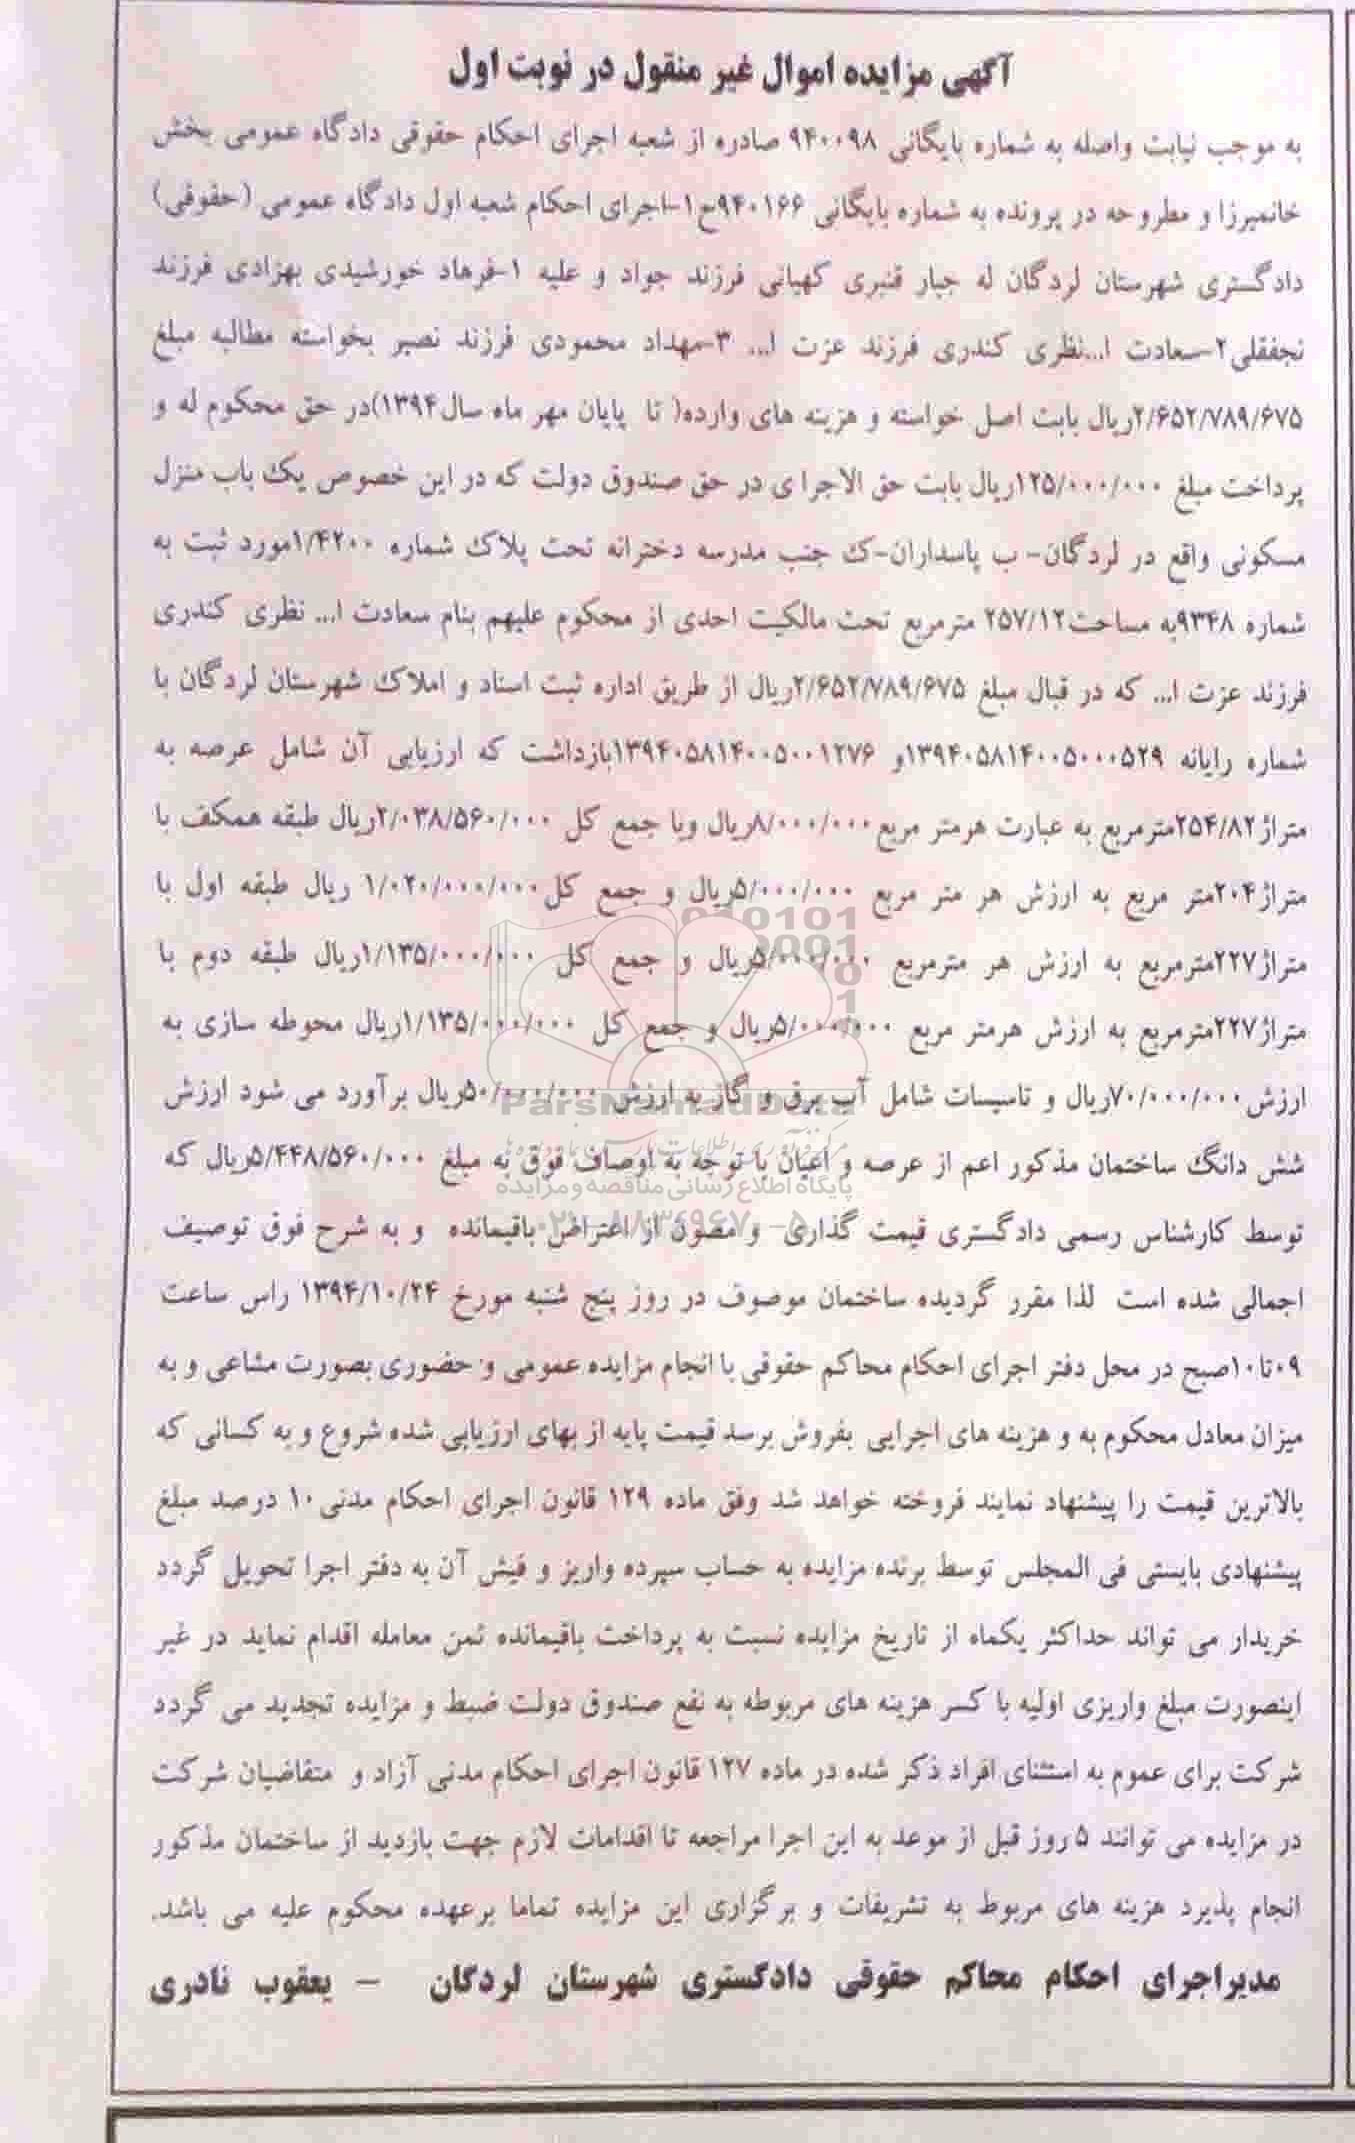 آگهی مزایده اموال غیر منقول در نوبت اول
به موجب نیابت واصله به شماره بایگانی ۹۴۰۰۹۸ صادره از شعبه اجرای احکام حقوقی دادگاه عمومی بخش
خانمیرزا و مطروحه در پرونده به شماره بایگانی ۹۴۰۱۶۶ح۱-اجرای احکام شعبه اول دادگاه عمومی (حقوقی)
دادگستری شهرستان لردگان له جبار قنبری کهیانی فرزند جواد و علیه ۱-فرهاد خورشیدی بهزادی فرزند
نجفقلی۲-سعادت ا...نظری کندری فرزند عزت ا... ۳-مهداد محمودی فرزند نصیر بخواسته مطالبه مبلغ
۲/۶۵۲/۷۸۹/۶۷۵ریال بابت اصل خواسته و هزینه های وارده( تا پایان مهر ماه سال۱۳۹۴)در حق محکوم له و
پرداخت مبلغ ۱۲۵/۰۰۰/۰۰۰ریال بابت حق الاجرا ی در حق صندوق دولت که در این خصوص یک باب منزل
مسکونی واقع در لردگان- ب پاسداران-ک جنب مدرسه دخترانه تحت پلاک شماره ۱/۴۲۰۰مورد ثبت به
شماره ۹۳۴۸به مساحت۲۵۷/۱۲ مترمربع تحت مالکیت احدی از محکوم علیهم بنام سعادت ا... نظری کندری
فرزند عزت ا... که در قبال مبلغ ۲/۶۵۲/۷۸۹/۶۷۵ریال از طریق اداره ثبت اسناد و املاک شهرستان لردگان با
شماره رایانه ۱۳۹۴۰۵۸۱۴۰۰۵۰۰۰۵۲۹و ۱۳۹۴۰۵۸۱۴۰۰۵۰۰۱۲۷۶بازداشت که ارزیابی آن شامل عرصه به
متراژ۲۵۴/۸۲مترمربع به عبارت هرمتر مربع۸/۰۰۰/۰۰۰ریال ویا جمع کل ۲/۰۳۸/۵۶۰/۰۰۰ریال طبقه همکف با
متراژ۲۰۴متر مربع به ارزش هر متر مربع ۵/۰۰۰/۰۰۰ریال و جمع کل۱/۰۲۰/۰۰۰/۰۰۰ ریال طبقه اول با
متراژ۲۲۷مترمربع به ارزش هر مترمربع ۵/۰۰۰/۰۰۰ریال و جمع کل ۱/۱۳۵/۰۰۰/۰۰۰ریال طبقه دوم با
متراژ۲۲۷مترمربع به ارزش هرمتر مربع ۵/۰۰۰/۰۰۰ریال و جمع کل ۱/۱۳۵/۰۰۰/۰۰۰ریال محوطه سازی به
ارزش۷۰/۰۰۰/۰۰۰ریال و تاسیسات شامل آب برق و گاز به ارزش ۵۰/۰۰۰/۰۰۰ریال برآورد می شود ارزش
ParsNamadData
شش دانگ ساختمان مذکور اعم از عرصه و اعیان با توجه به اوصاف فوق به مبلغ ۵/۴۴۸/۵۶۰/۰۰۰ریال که
پایگاه اطلاع رسانی مناقصه و مزایده
توسط کارشناس رسمی دادگستری قیمت گذاری و مصون از اعتراض باقیمانده و به شرح فوق توصیف
۰۲۱-۸۸۳۴۹۶۷۰-۵
اجمالی شده است لذا مقرر گردیده ساختمان موصوف در روز پنج شنبه مورخ ۱۳۹۴/۱۰/۲۴ راس ساعت
۰۹تا۱۰صبح در محل دفتر اجرای احکام محاکم حقوقی با انجام مزایده عمومی و حضوری بصورت مشاعی و به
میزان معادل محکوم به و هزینه های اجرایی بفروش برسد قیمت پایه از بهای ارزیابی شده شروع و به کسانی که
بالاترین قیمت را پیشنهاد نمایند فروخته خواهد شد وفق ماده ۱۲۹ قانون اجرای احکام مدنی۱۰ درصد مبلغ
پیشنهادی بایستی فی المجلس توسط برنده مزایده به حساب سپرده واریز و فیش آن به دفتر اجرا تحویل گردد
خریدار می تواند حداکثر یکماه از تاریخ مزایده نسبت به پرداخت باقیمانده ثمن معامله اقدام نماید در غیر
اینصورت مبلغ واریزی اولیه با کسر هزینه های مربوطه به نفع صندوق دولت ضبط و مزایده تجدید می گردد
شرکت برای عموم به استثنای افراد ذکر شده در ماده ۱۲۷ قانون اجرای احکام مدنی آزاد و متقاضیان شرکت
در مزایده می توانند ۵ روز قبل از موعد به این اجرا مراجعه تا اقدامات لازم جهت بازدید از ساختمان مذکور
انجام پذیرد هزینه های مربوط به تشریفات و برگزاری این مزایده تماما برعهده محکوم علیه می باشد.
مدیراجرای احکام محاکم حقوقی دادگستری شهرستان لردگان - یعقوب نادری